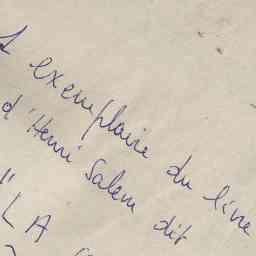 1 exemplaire du livre
d'Henri Salem dit
" LA